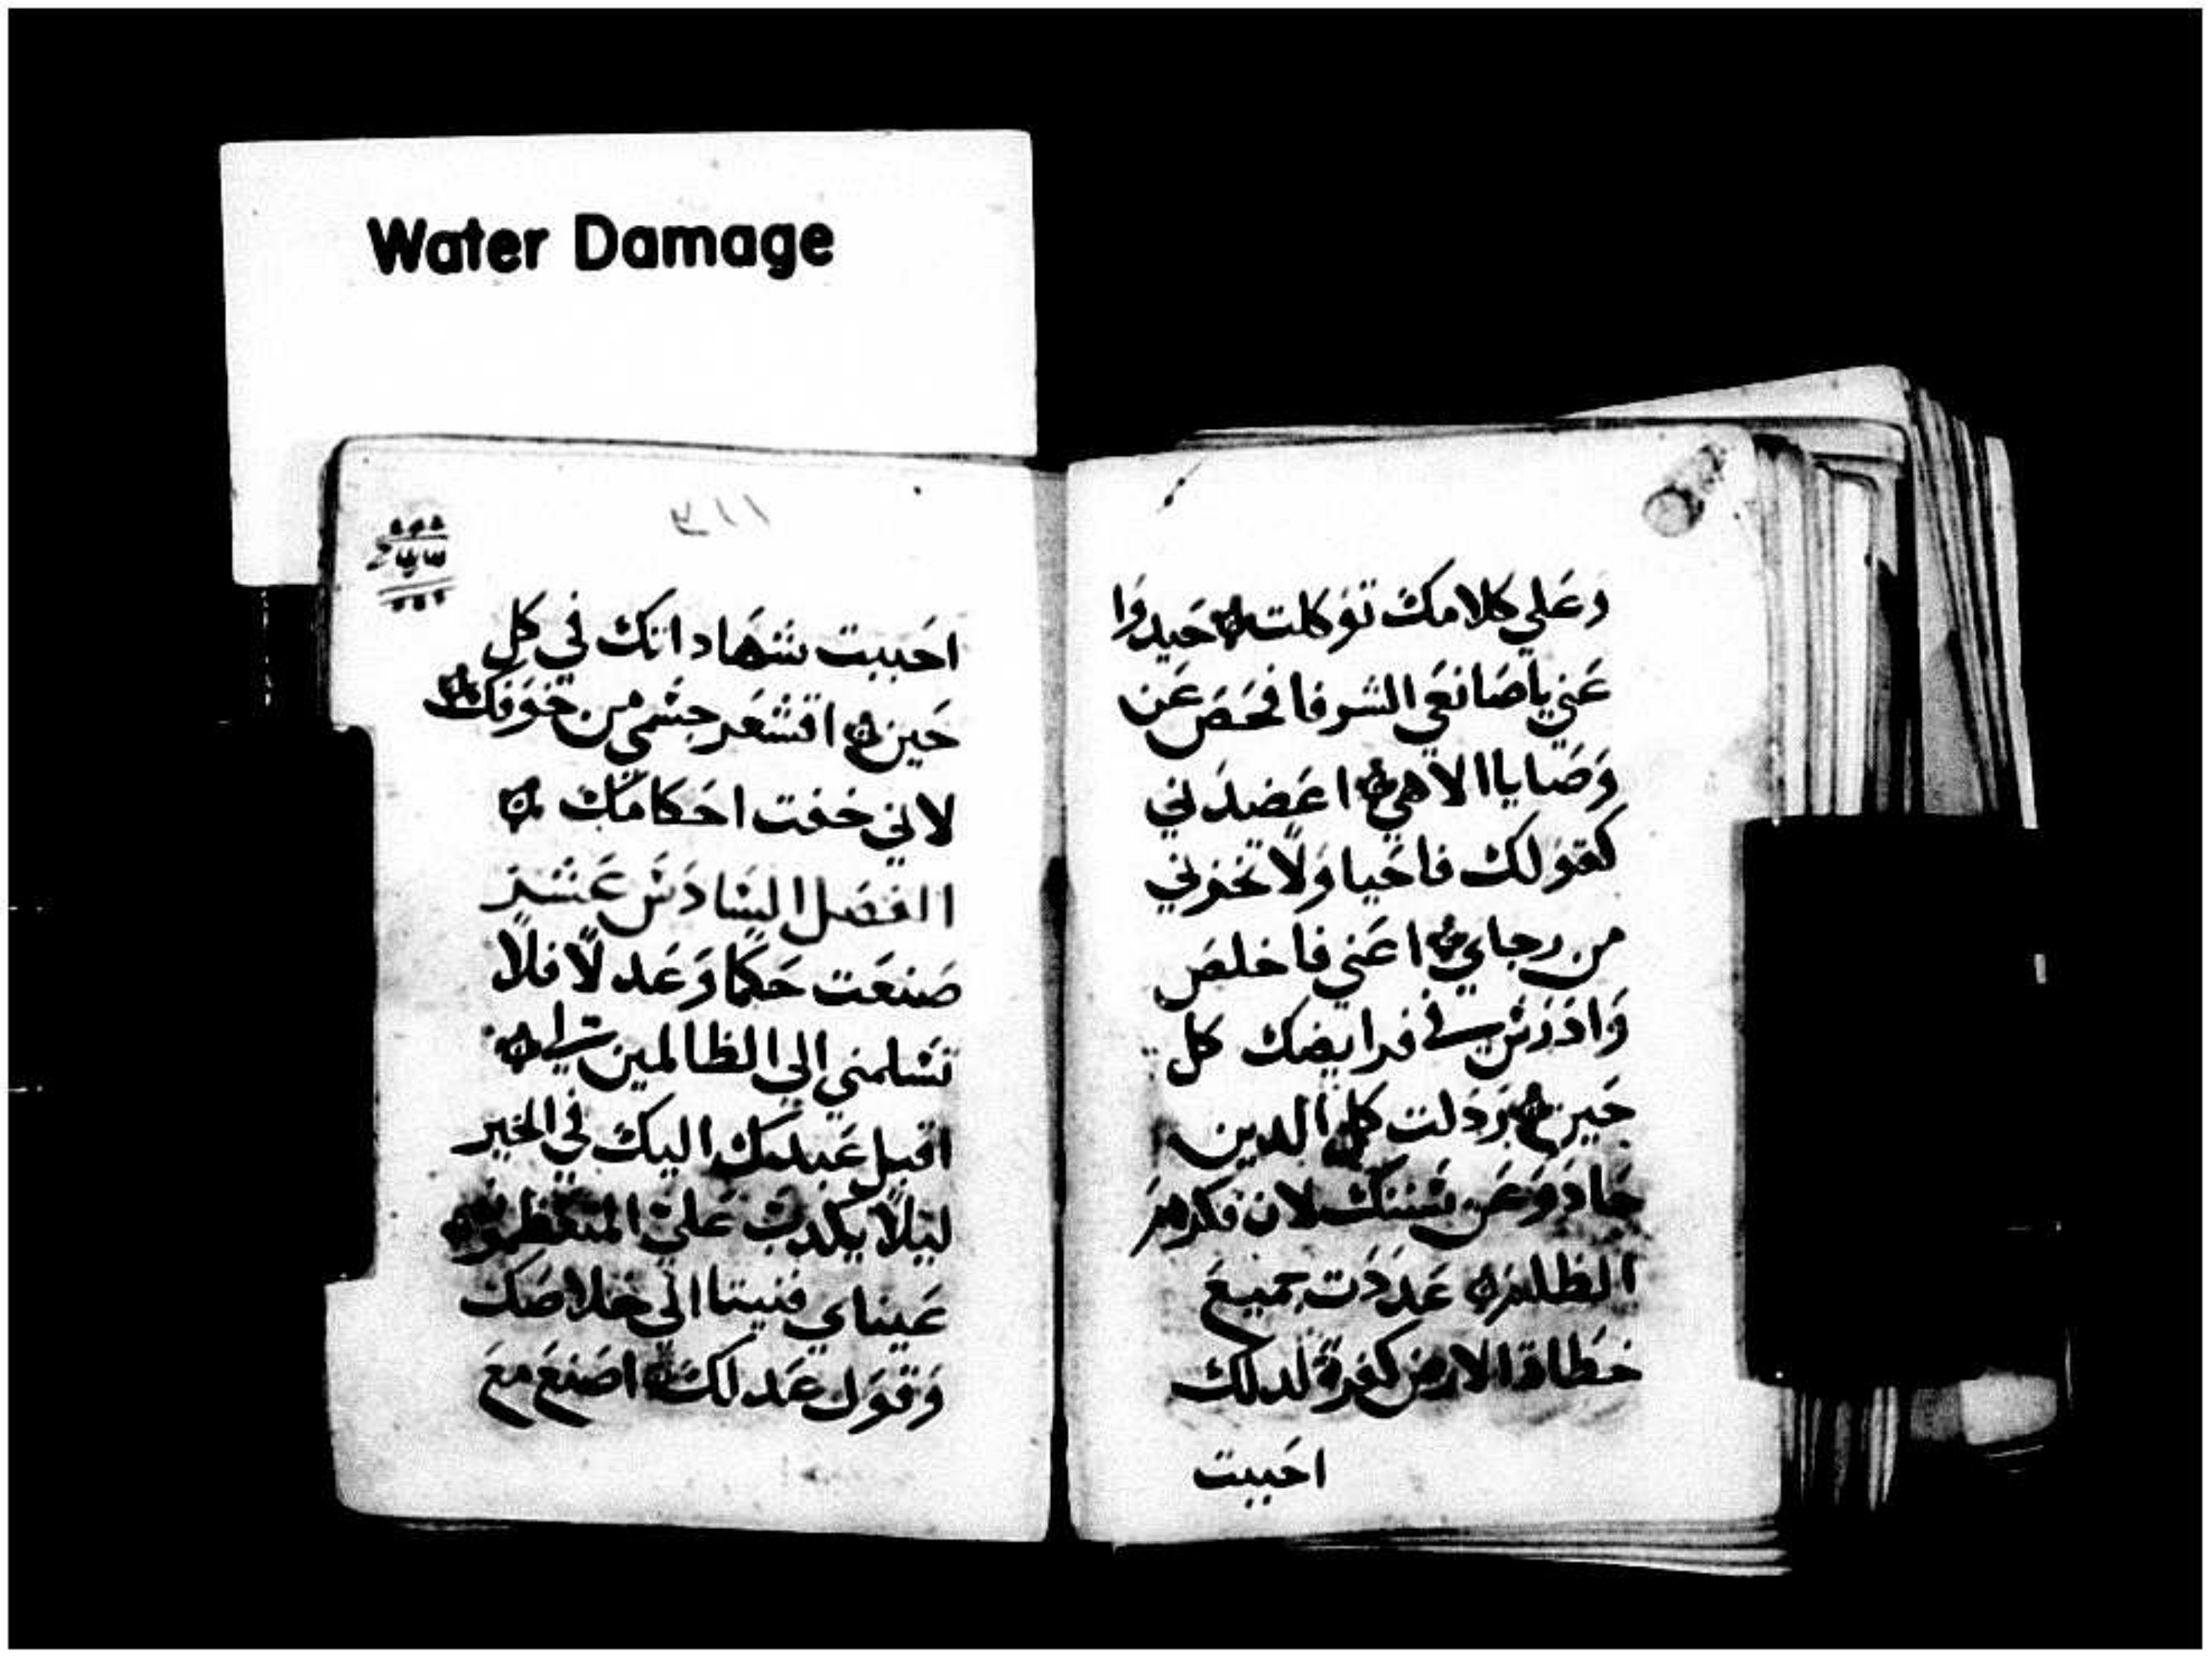 Water Damage
وعلي كلامك توكلت حيدوا
عني ياصانعي الشر فافحص عن
وصايا الاهي اعضدني
كقولك فاحيا ولا تخزني
من رجاي اعني فاخلص
وادرس في فرايضك كل
حين رذلت كل الدين
حادو عن سننك لان فكرهم
الظلم عددت جميع
خطاة الارض كفرة لدلك
احببت
٣١١
احببت شهاداتك في كل
حين اقشعر جسمي من خوفك
لاني خفت احكامك
الفصل السادس عشر
صنعت حكما وعدلا فلا
تسلمني الي الظالمين لي
اقبل عبدك اليك في الخير
ليلا يكذب علي المتعظمون
عيناي فنيتا الي خلاصك
وقول عدلك اصنع مع